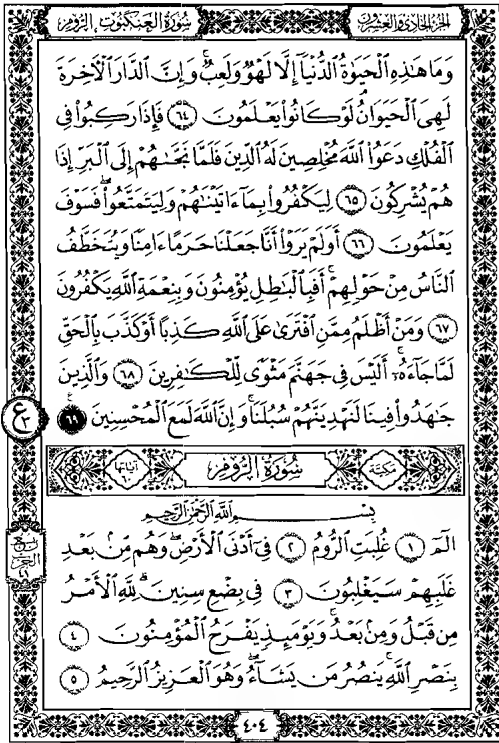 الجزء الحادي والعشرون
سورة العنكبوت، الروم
وَمَا هَٰذِهِ الْحَيَوٰةُ الدُّنْيَآ إِلَّا لَهْوٌ وَلَعِبٌ ۚ وَإِنَّ الدَّارَ الْآخِرَةَ
لَهِيَ الْحَيَوَانُ ۚ لَوْ كَانُوا۟ يَعْلَمُونَ ٦٤ فَإِذَا رَكِبُوا۟ فِى
الْفُلْكِ دَعَوُا۟ اللَّهَ مُخْلِصِينَ لَهُ الدِّينَ فَلَمَّا نَجَّىٰهُمْ إِلَى الْبَرِّ إِذَا
هُمْ يُشْرِكُونَ ٦٥ لِيَكْفُرُوا۟ بِمَآ ءَاتَيْنَٰهُمْ وَلِيَتَمَتَّعُوا۟ ۖ فَسَوْفَ
يَعْلَمُونَ ٦٦ أَوَلَمْ يَرَوْا۟ أَنَّا جَعَلْنَا حَرَمًا ءَامِنًا وَيُتَخَطَّفُ
النَّاسُ مِنْ حَوْلِهِمْ ۚ أَفَبِالْبَٰطِلِ يُؤْمِنُونَ وَبِنِعْمَةِ اللَّهِ يَكْفُرُونَ
٦٧ وَمَنْ أَظْلَمُ مِمَّنِ افْتَرَىٰ عَلَى اللَّهِ كَذِبًا أَوْ كَذَّبَ بِالْحَقِّ
لَمَّا جَآءَهُۥٓ ۚ أَلَيْسَ فِى جَهَنَّمَ مَثْوًى لِّلْكَٰفِرِينَ ٦٨ وَالَّذِينَ
جَٰهَدُوا۟ فِينَا لَنَهْدِيَنَّهُمْ سُبُلَنَا ۚ وَإِنَّ اللَّهَ لَمَعَ الْمُحْسِنِينَ ٦٩
ع
٣
مكية
سُورَةُ الرُّومِ
آياتها
بِسْمِ اللَّهِ الرَّحْمَٰنِ الرَّحِيمِ
الٓمٓ ١ غُلِبَتِ الرُّومُ ٢ فِىٓ أَدْنَى الْأَرْضِ وَهُم مِّنۢ بَعْدِ
غَلَبِهِمْ سَيَغْلِبُونَ ٣ فِى بِضْعِ سِنِينَ ۗ لِلَّهِ الْأَمْرُ
مِن قَبْلُ وَمِنۢ بَعْدُ ۚ وَيَوْمَئِذٍ يَفْرَحُ الْمُؤْمِنُونَ ٤
بِنَصْرِ اللَّهِ ۚ يَنصُرُ مَن يَشَآءُ ۖ وَهُوَ الْعَزِيزُ الرَّحِيمُ ٥
٤٠٤